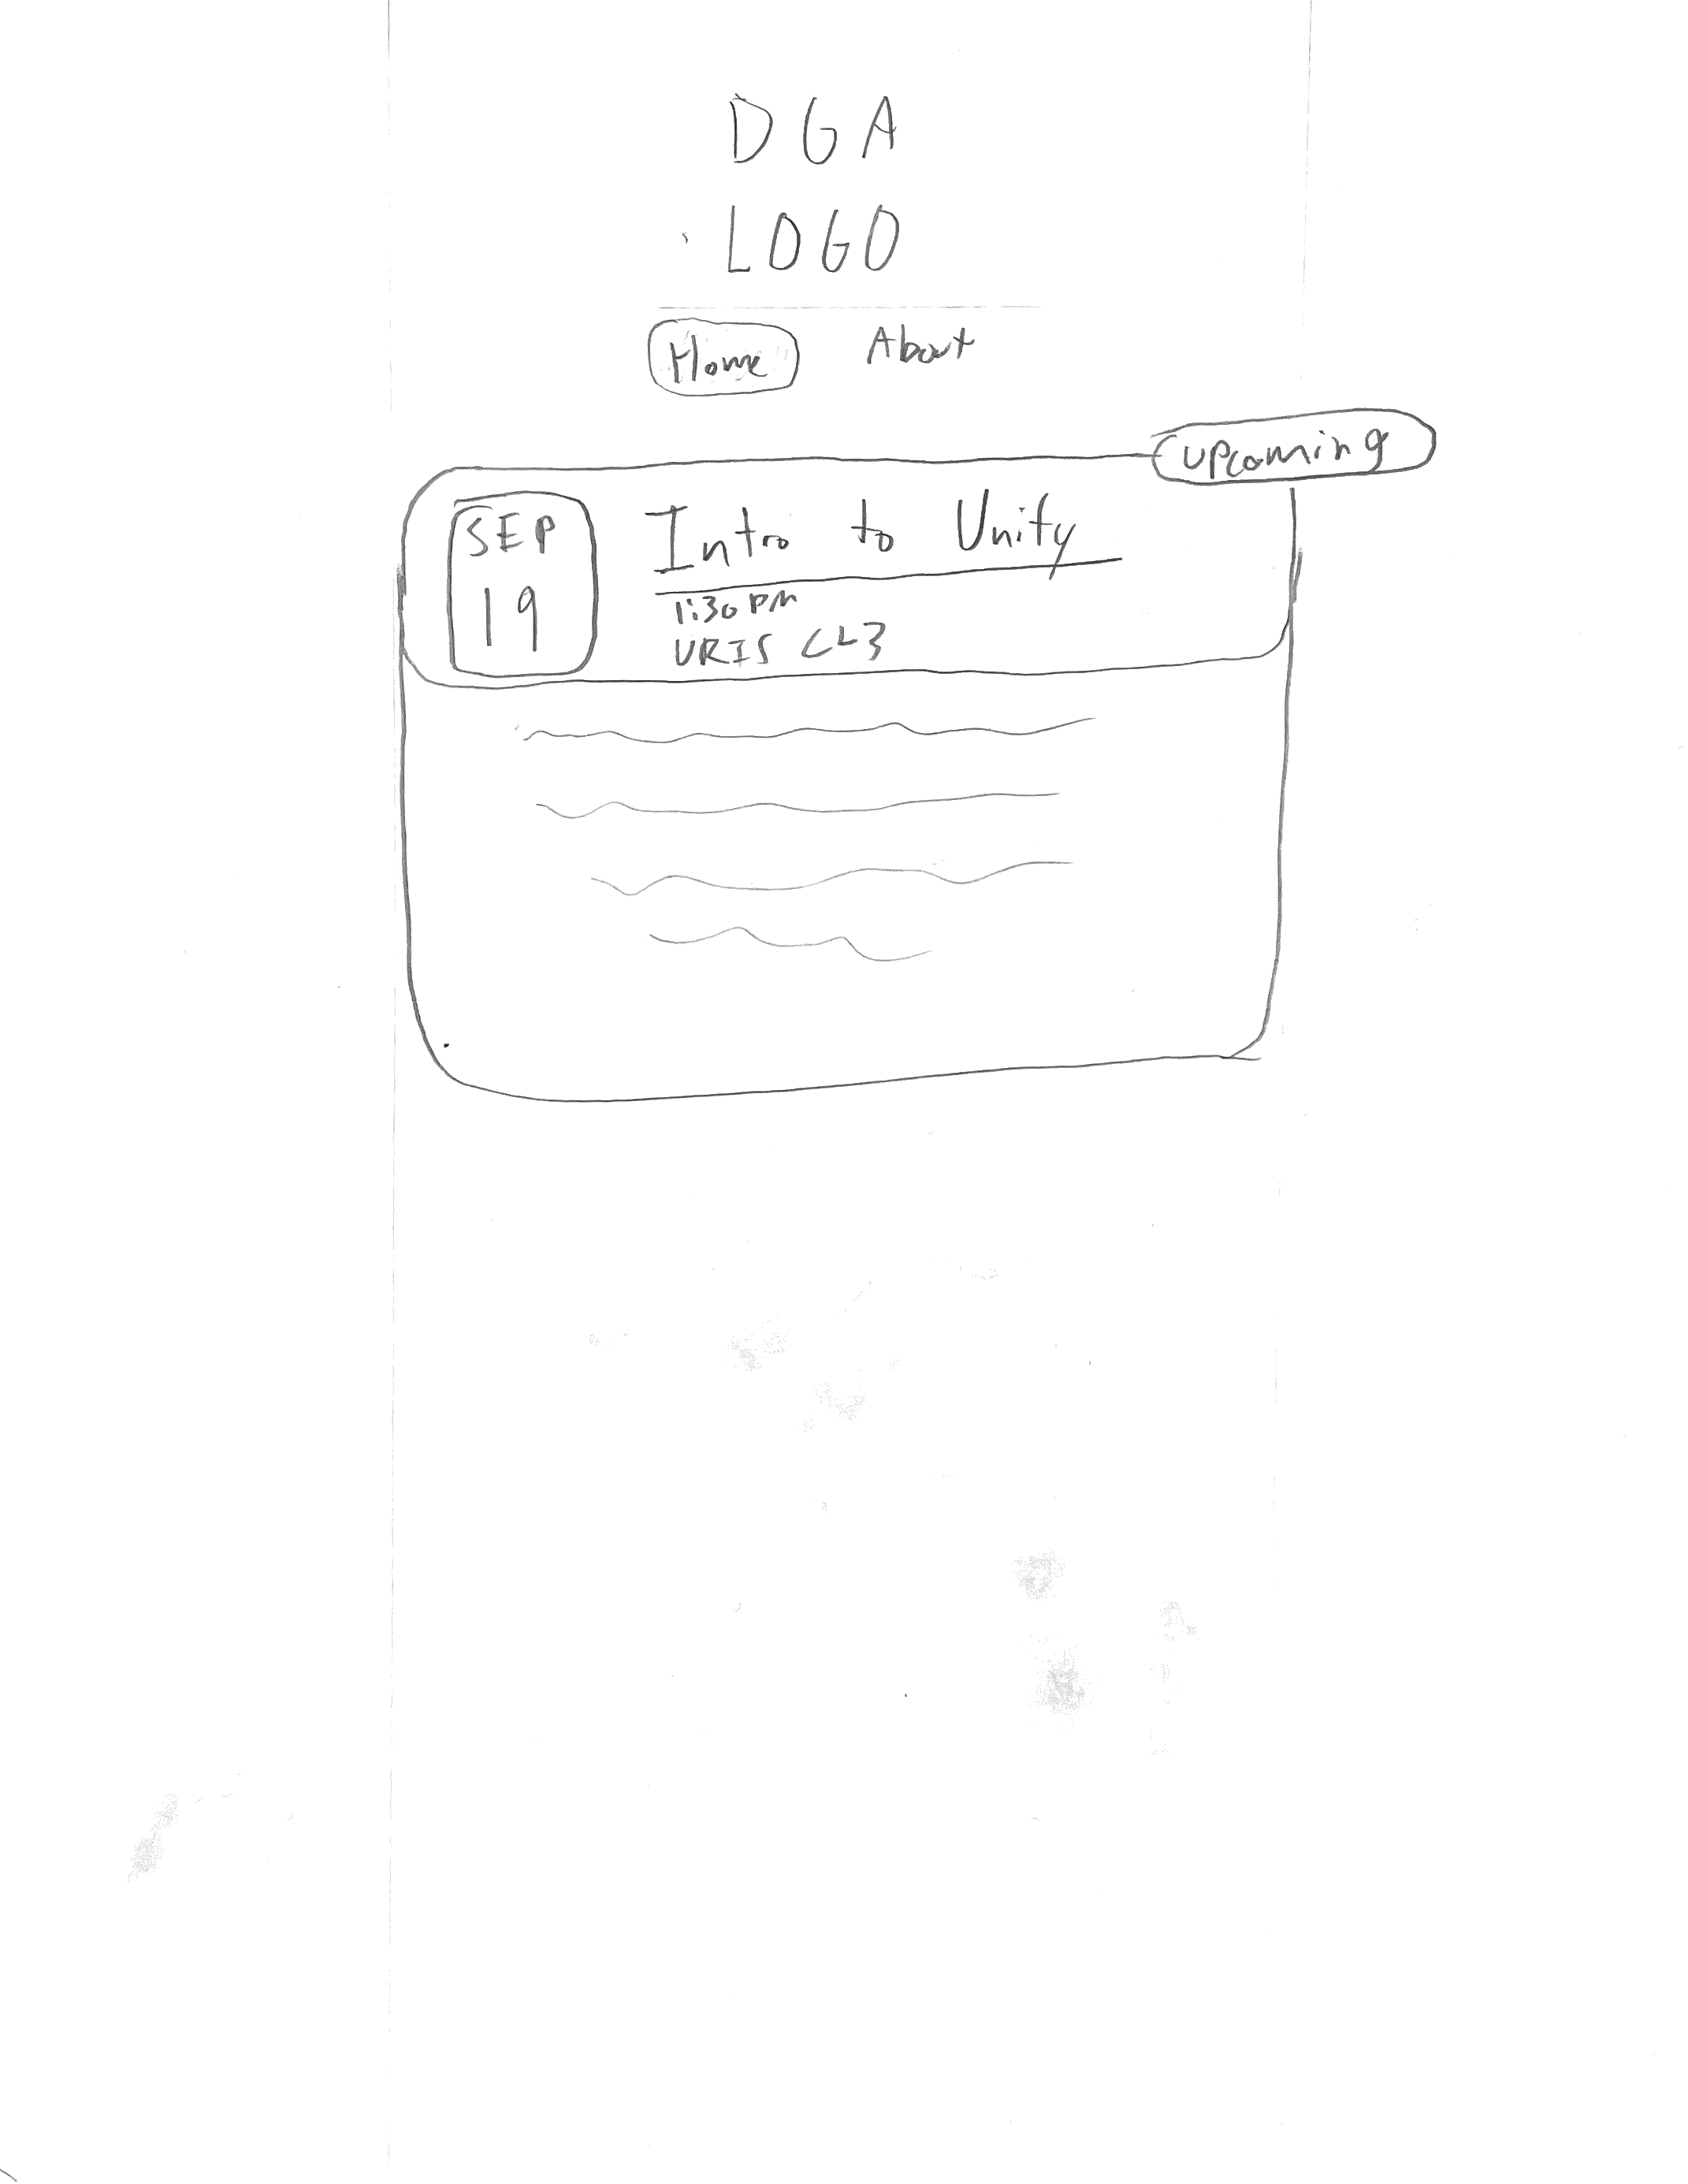 DGA
LOGO
Home
About
upcoming
SEP
19
Intro to Unity
1:30 PM
URIS CL3